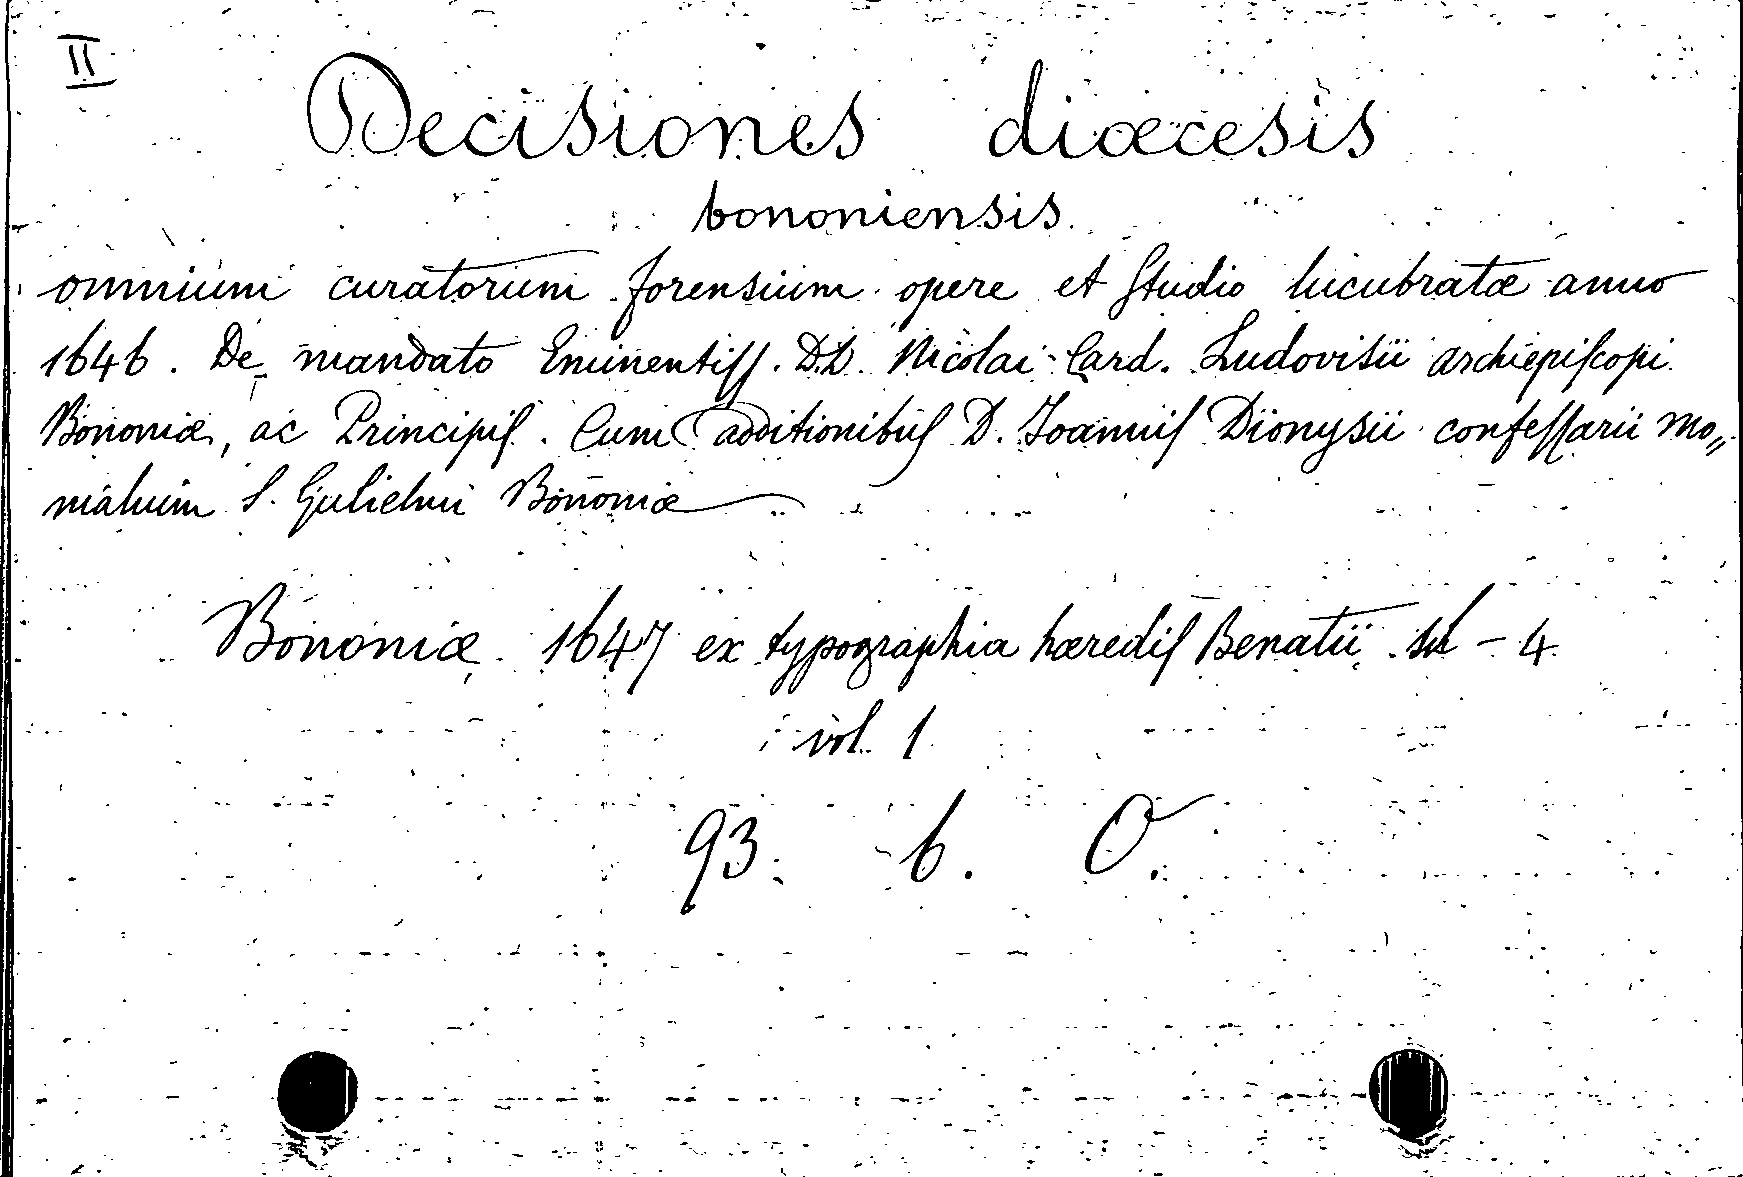 II
Decisiones diœcesis
bononiensis
omnium curatorum forensium opere et studio lucubratæ anno
1646. De mandato Eminentiss. D.D. Nicolai Card. Ludovisii archiepiscopi
Bononiæ, ac Principis. Cum additionibus D. Joannis Dionysii confessarii mo„
nialium S. Gulielmi Bononiæ
Bononiæ 1647 ex typographia hæredis Benatii in - 4
vol. 1
93. b. O.